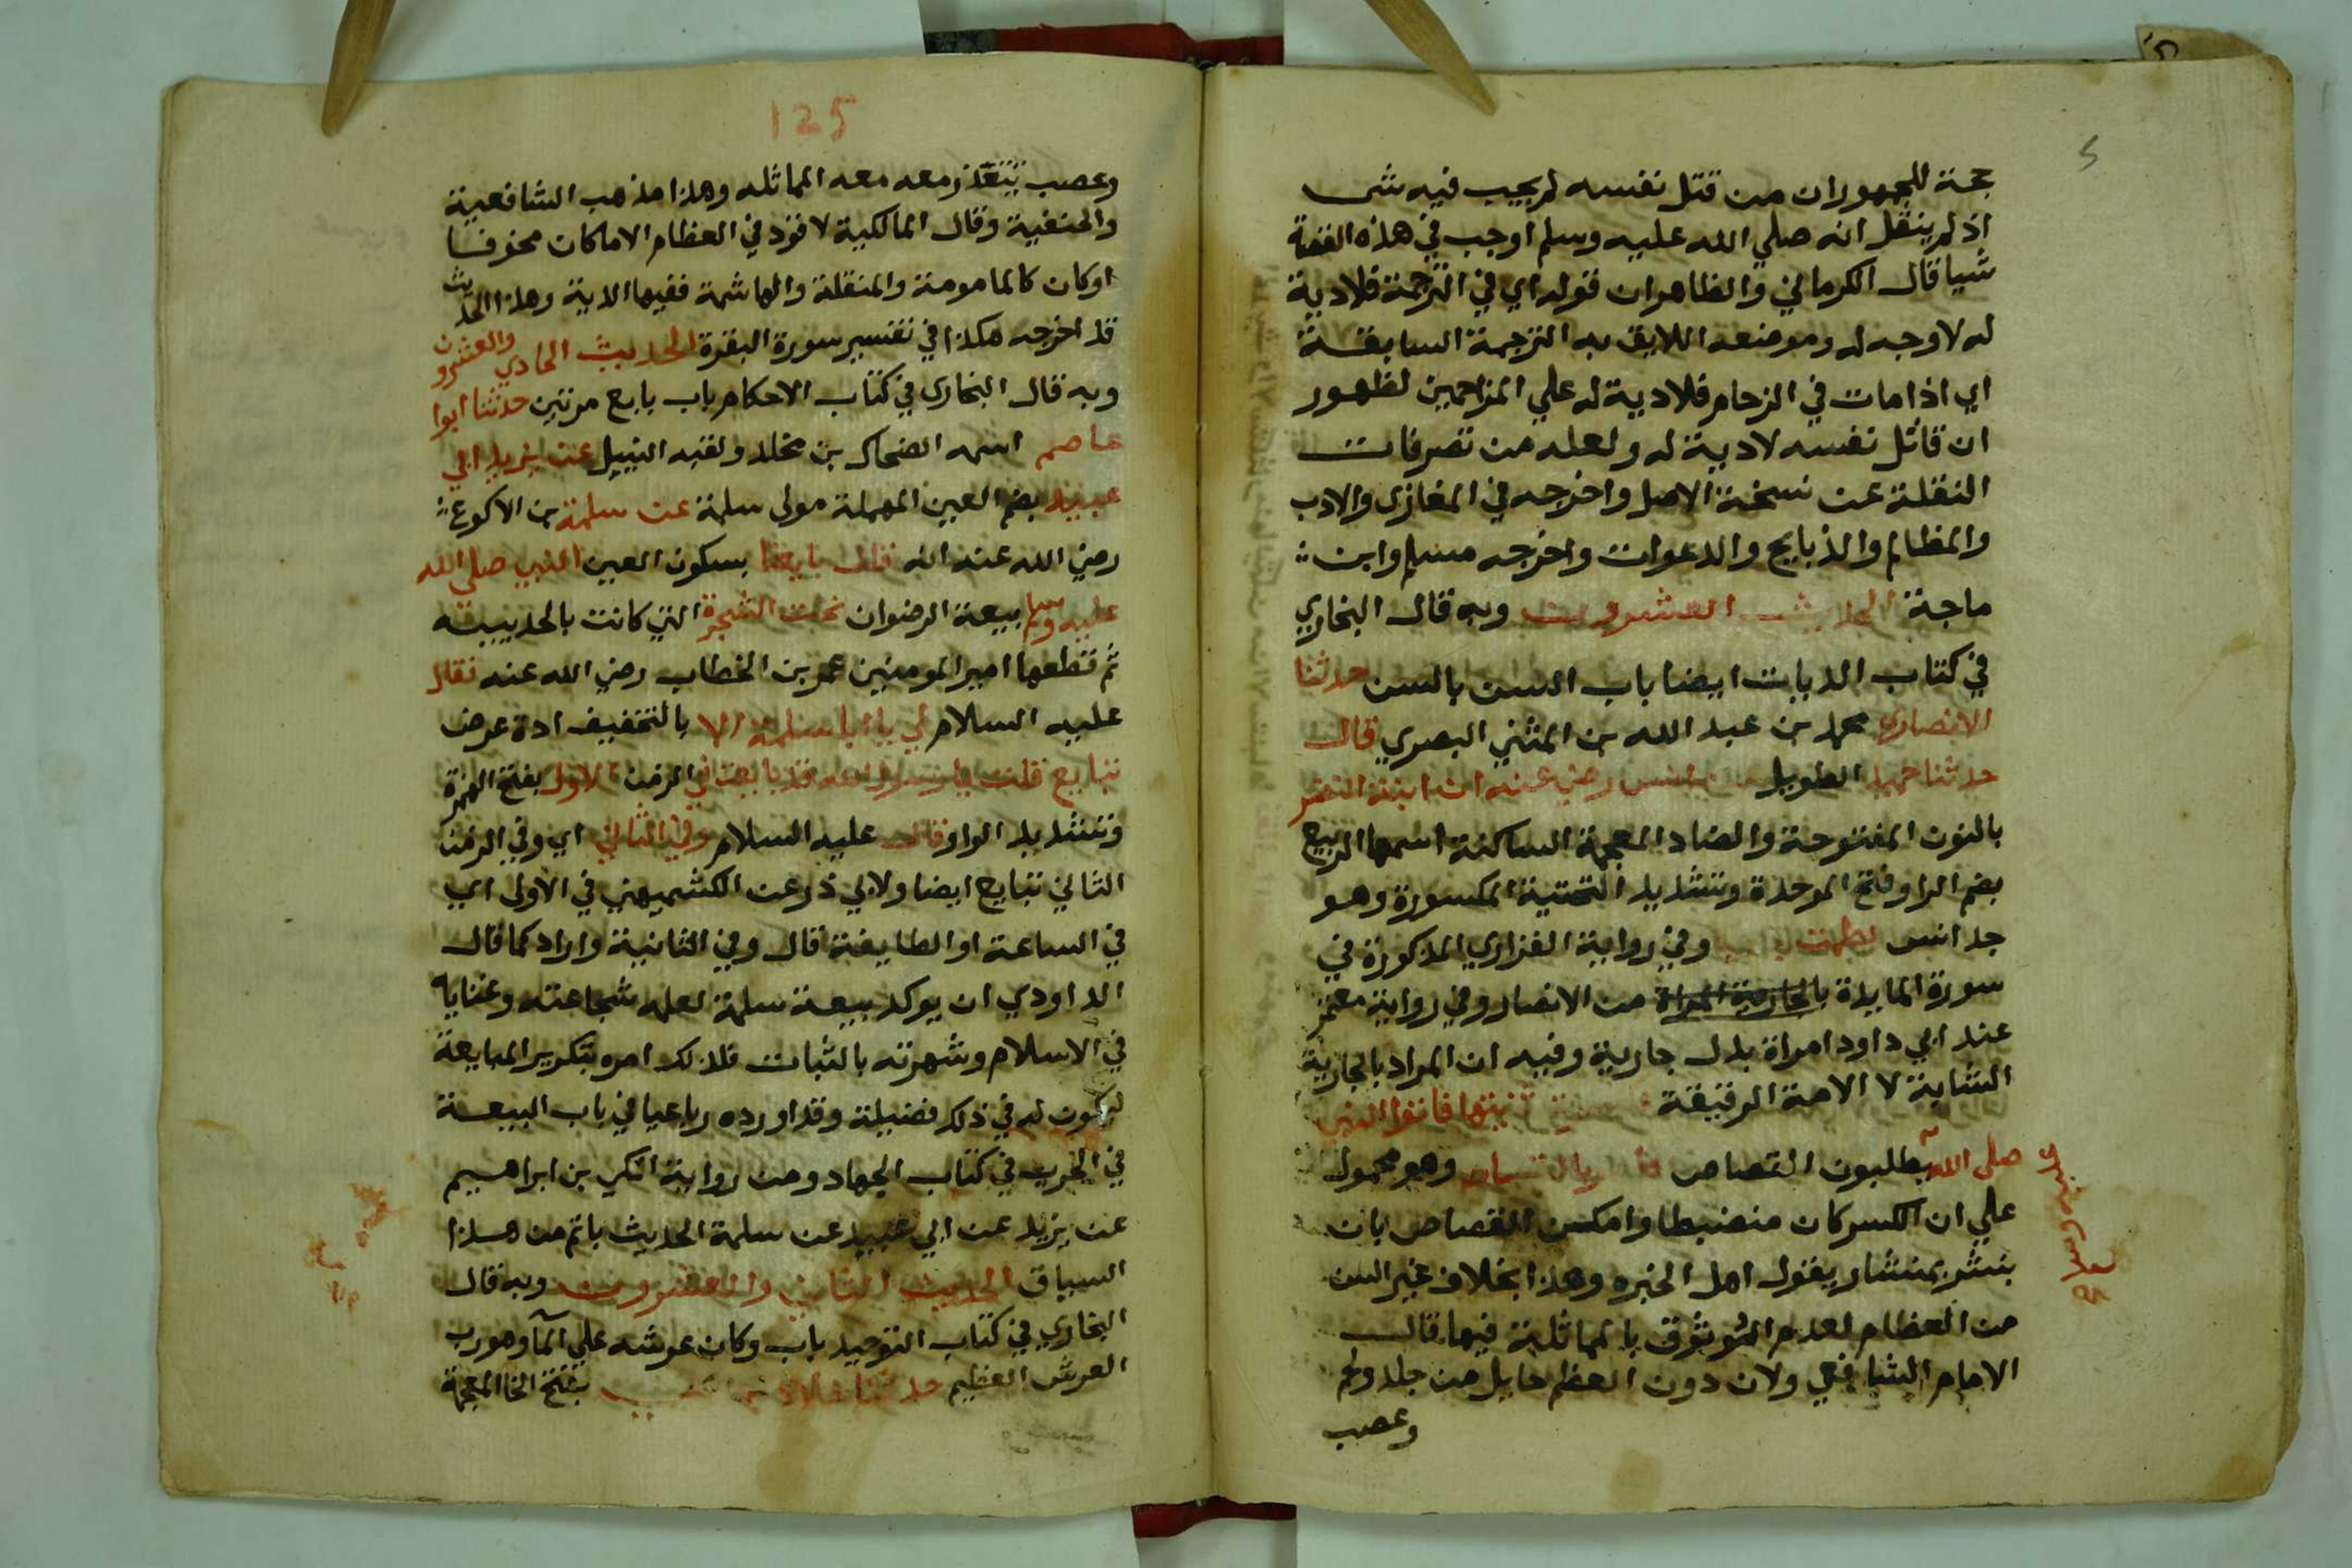 حجة للجمهور ان من قتل نفسه لم يجب فيه شى
اذ لم ينقل انه صلي الله عليه وسلم اوجب في هذه القصة
شيا قال الكرماني والظاهر ان قوله اي في الترجمة فلا دية
له لا وجه له وموضعه اللايق به الترجمة السابقة
اي اذا مات في الزحام فلا دية له علي المزاحمين لظهور
ان قاتل نفسه لا دية له ولعله من تصرفات
النقلة عن نسخة الاصل واخرجه في المغازى والادب
والمظالم والذبايح والدعوات واخرجه مسلم وابن
ماجة الحديث العشرون وبه قال البخاري
في كتاب الديات ايضا باب السن بالسن حدثنا
الانصارى محمد بن عبد الله بن المثني البصري قال
حدثنا حميد الطويل عن انس رضي عنه ان ابنة النضر
بالنون المفتوحة والضاد المعجمة الساكنة اسمها الربيع
بضم الرا وفتح الموحدة وتشديد التحتية المكسورة وهو
جد انس لطمت جارية وفي رواية الفزاري المذكورة في
سورة المايدة بالجارية المراة من الانصار وفي رواية معتمر
عند ابي داود امراة بدل جارية وفيه ان المراد بالجارية
الشابة لا الامة الرقيقة فكسرت ثنيتها فاتوا النبي
صلى الله عليه وسلم
يطلبون القصاص فامر بالقصاص وهو محمول
علي ان الكسر كان منضبطا وامكن القصاص بان
ينشر بمنشار يقول اهل الخبره وهذا بخلاف غير السن
من العظام لعدم الوثوق بالمماثلة فيها قال
الامام الشافعي ولان دون العظم حايل من جلد ولحم
وعصب
125
وعصب يتعذر معه معه المماثله وهذا مذهب الشافعية
والحنفية وقال المالكية لا قود في العظام الا ما كان مخوفا
او كان كالمامومة والمنقلة والهاشمة ففيها الدية وهذا الحديث
قد اخرجه هكذا في تفسير سورة البقرة الحديث الحادي والعشرون
وبه قال البخارى في كتاب الاحكام باب بايع مرتين حدثنا ابوا
عاصم اسمه الضحاك بن مخلد ولقبه النبيل عن يزيد ابي
عبيد بضم العين المهملة مولى سلمة عن سلمة بن الاكوع
رضي الله عنه انه قال بايعنا بسكون العين النبي صلى الله
عليه وسلم بيعة الرضوان تحت الشجرة التي كانت بالحديبيه
ثم قطعها امير المومنين عمر بن الخطاب رضي الله عنه فقال
عليه السلام لي يا ابا سلمة الا بالتخفيف اداة عرض
تبايع قلت يا رسول الله قد بايعت في الزمن الاول بفتح الهمزة
وتشديد الواو قال عليه السلام وفي الثاني اي وفي الزمن
الثاني تبايع ايضا ولابي ذر عن الكشميهني في الاولى اي
في الساعة او الطايفة قال وفي الثانية واراد كما قال
الداودي ان يوكد بيعة سلمة لعلمه شجاعته وعنايه
في الاسلام وشهرته بالثبات فلذلك امره بتكرير المبايعة
ليكون له في ذلك فضيلة وقد اورده رباعيا في باب البيعة
في الحرب في كتاب الجهاد ومن رواية المكي بن ابراهيم
عن يزيد عن ابي عبيد عن سلمة الحديث باتم من هذا
السياق الحديث الثاني والعشرون وبه قال
البخاري في كتاب التوحيد باب وكان عرشه علي المآ وهو رب
العرش العظيم حدثنا خلاد بن يحيى بفتح الخا المعجمة